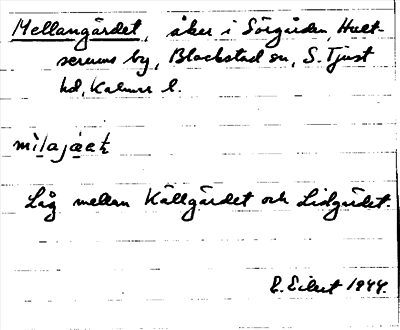 Mellangärdet, åker i Sörgården, Hult-
serums by, Blackstad sn, S. Tjust
hd, Kalmar l.
Låg mellan Källgärdet och Lidgärdet.
1944.